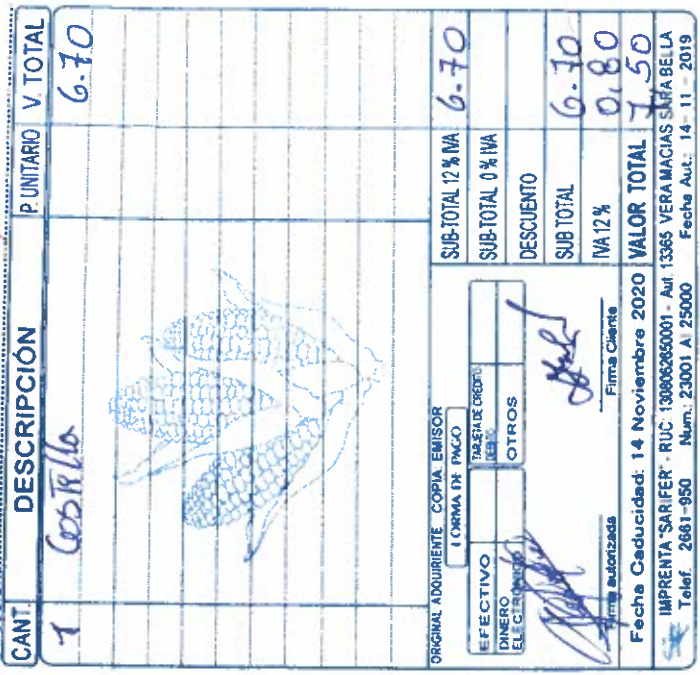 CANT. DESCRIPCIÓN P. UNITARIO V. TOTAL
1 Costilla 6.70
ORIGINAL ADQUIRIENTE COPIA EMISOR
FORMA DE PAGO
EFECTIVO
DINERO ELECTRONICO
TARJETA DE CREDITO
DEBITO
OTROS
Firma autorizada
Firma Cliente
SUB-TOTAL 12 % IVA 6.70
SUB-TOTAL 0 % IVA
DESCUENTO
SUB TOTAL 6.70
IVA 12 % 0.80
Fecha Caducidad: 14 Noviembre 2020 VALOR TOTAL 7.50
IMPRENTA "SARIFER" - RUC: 1308062850001 - Aut. 13365 VERA MACIAS SARA BELLA
Telef. 2661-950 Num: 23001 Al 25000 Fecha Aut.: 14 - 11 - 2019